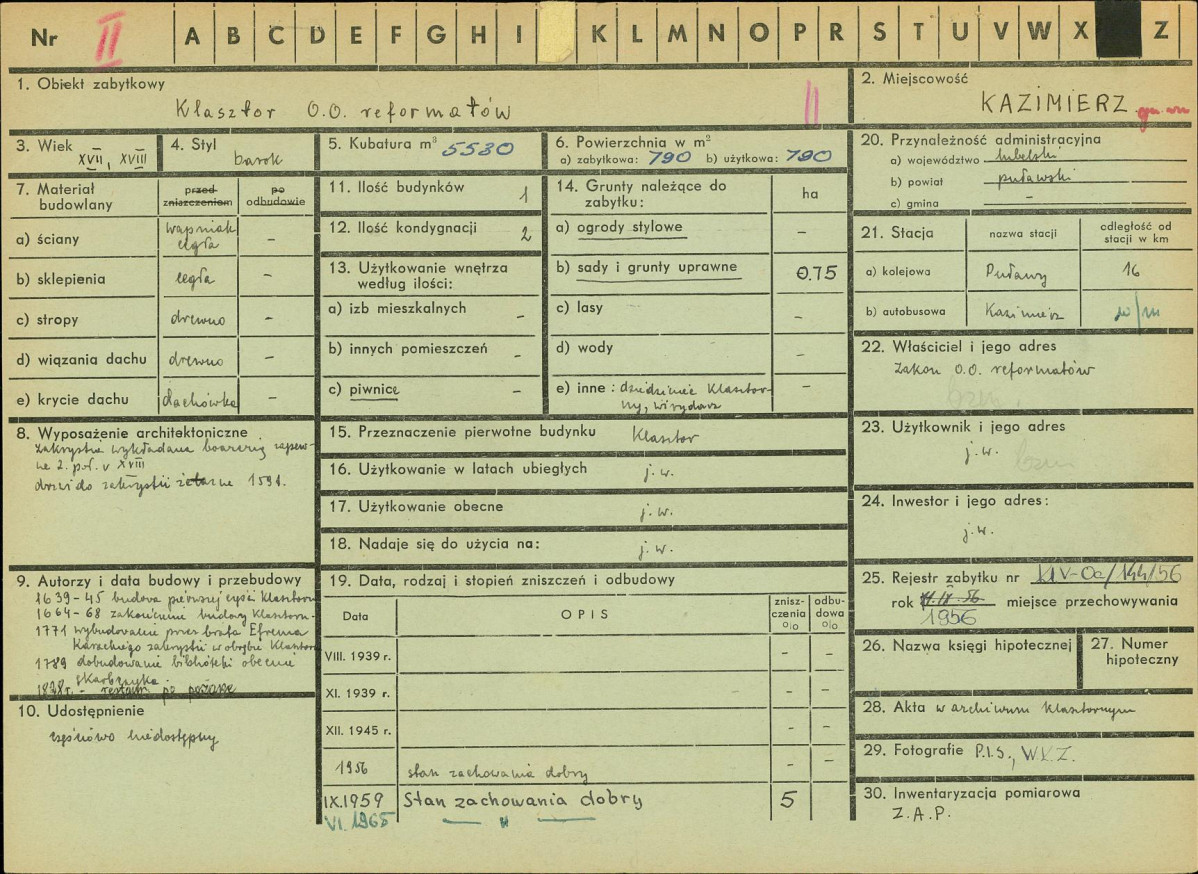 Nr II A B C D E F G H I K L M N O P R S T U V W X Z
1. Obiekt zabytkowy
Klasztor O.O. reformatów
II
2. Miejscowość
KAZIMIERZ
3. Wiek XVII, XVIII
4. Styl barok
5. Kubatura m³ 5530
6. Powierzchnia w m²
a) zabytkowa: 790 b) użytkowa: 790
7. Materiał budowlany
przed zniszczeniem
po odbudowie
a) ściany wapniak cegła –
b) sklepienia cegła –
c) stropy drewno –
d) wiązania dachu drewno –
e) krycie dachu dachówka –
8. Wyposażenie architektoniczne
zakrystia wykładana boazerią zapew-
ne 2. poł. w XVIII
drzwi do zakrystii żelazne 1591.
9. Autorzy i data budowy i przebudowy
1639-45 budowa pierwszej części klasztoru
1664-68 zakończenie budowy klasztoru-
1771 wybudowanie przez brata Efrema
zakrystii w obrębie klasztoru
1789 dobudowanie biblioteki obecnie
skarbczyka.
po pożarze
10. Udostępnienie
częściowo niedostępny
11. Ilość budynków 1
12. Ilość kondygnacji 2
13. Użytkowanie wnętrza
według ilości:
a) izb mieszkalnych –
b) innych pomieszczeń –
c) piwnice –
14. Grunty należące do
zabytku:
ha
a) ogrody stylowe –
b) sady i grunty uprawne 0.75
c) lasy –
d) wody –
e) inne : dziedziniec klasztor-
ny, wirydarz –
15. Przeznaczenie pierwotne budynku Klasztor
16. Użytkowanie w latach ubiegłych j.w.
17. Użytkowanie obecne j.w.
18. Nadaje się do użycia na: j.w.
19. Data, rodzaj i stopień zniszczeń i odbudowy
Data
OPIS
znisz-
czenia
o|o
odbu-
dowa
o|o
VIII. 1939 r. – –
XI. 1939 r. – –
XII. 1945 r. – –
1956 stan zachowania dobry – –
IX.1959 Stan zachowania dobry 5
VI.1965 — " —
20. Przynależność administracyjna
a) województwo lubelski
b) powiat puławski
c) gmina –
21. Stacja
nazwa stacji
odległość od
stacji w km
a) kolejowa Puławy 16
b) autobusowa Kazimierz
22. Właściciel i jego adres
Zakon O.O. reformatów
23. Użytkownik i jego adres
j.w.
24. Inwestor i jego adres:
j.w.
25. Rejestr zabytku nr KIV-Oa/144/56
rok 1956 miejsce przechowywania
26. Nazwa księgi hipotecznej
27. Numer
hipoteczny
28. Akta w archiwum klasztornym
29. Fotografie P.I.S., W.K.Z.
30. Inwentaryzacja pomiarowa
Z.A.P.